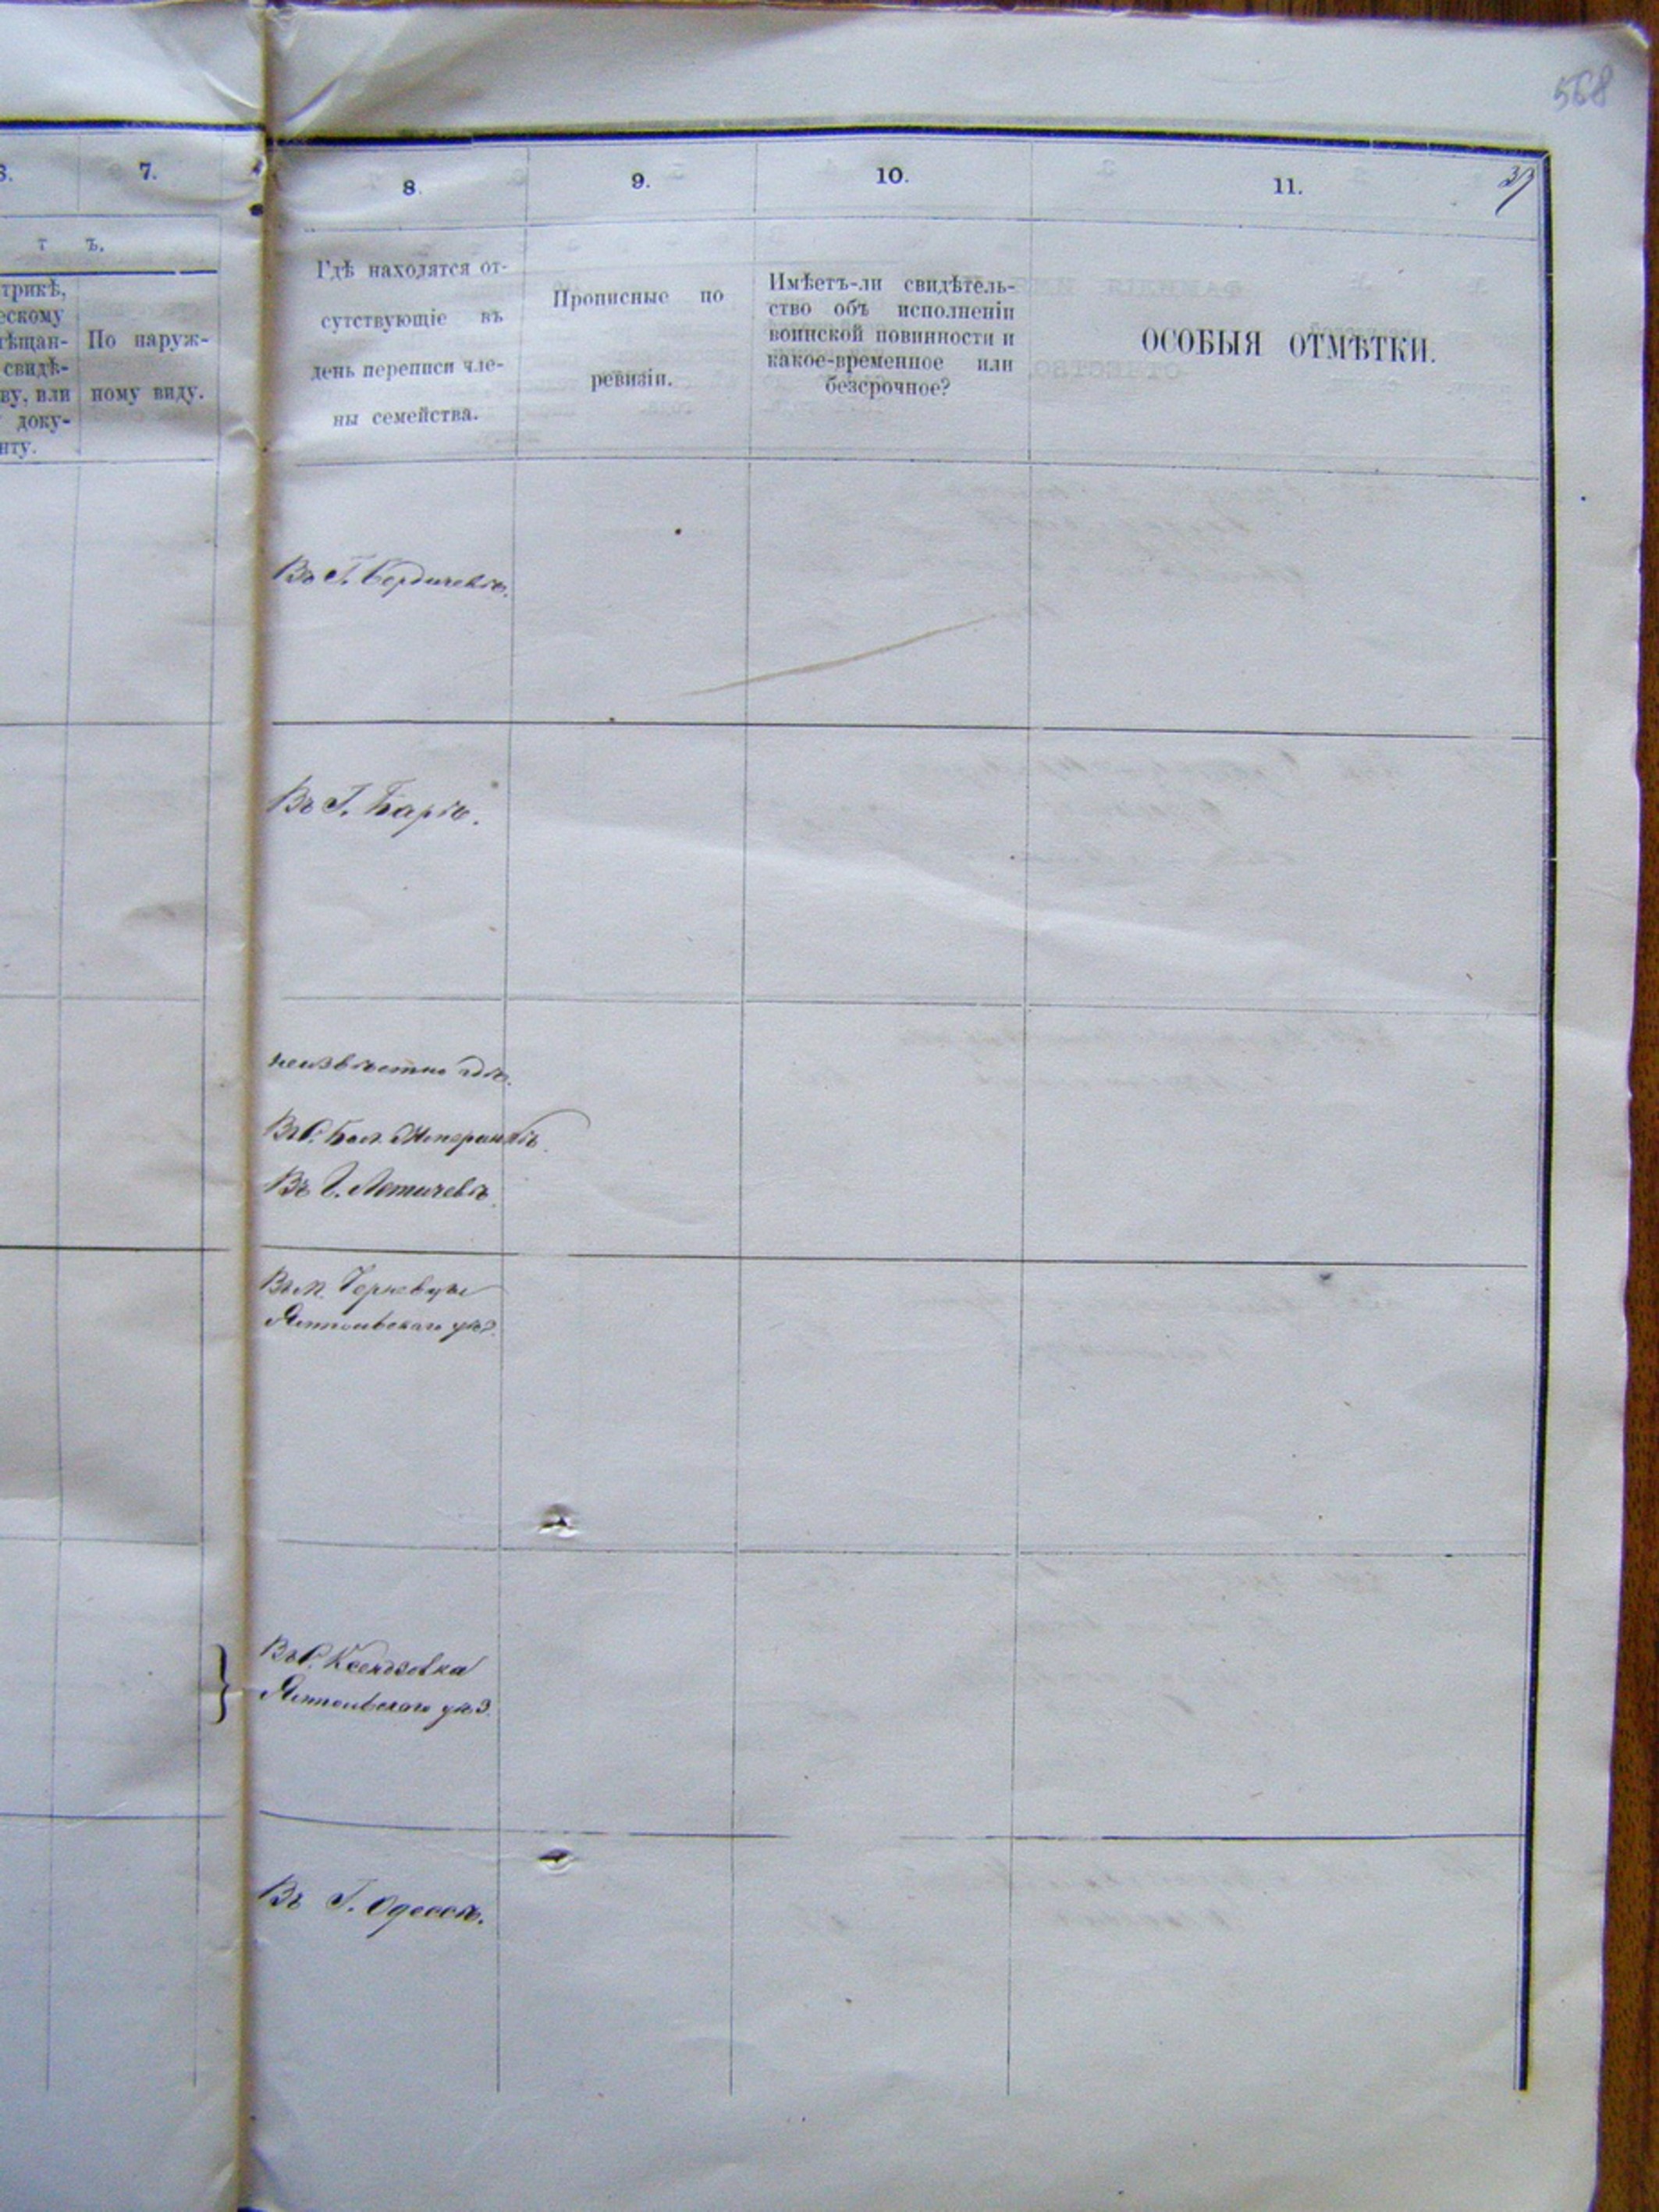 568
37
7.
8.
9.
10.
11.
т ъ.
трикѣ,
ескому
ѣщан-
свидѣ-
ву, или
доку-
нту.
По наруж-
ному виду.
Гдѣ находятся от-
сутствующіе въ
день переписи чле-
ны семейства.
Прописные по
ревизіи.
Имѣетъ-ли свидѣтель-
ство объ исполненіи
воинской повинности и
какое-временное или
безсрочное?
ОСОБЫЯ ОТМѢТКИ.
Въ Г. Бердичевѣ.
Въ Г. Барѣ.
неизвѣстно гдѣ.
Въ С. Бол.
Въ Г. Летичевѣ
Въ м. Черневцы
Ямпольскаго уѣз.
Въ С. Ксендзовка
Ямпольскаго уѣз.
Въ Г. Одессѣ.